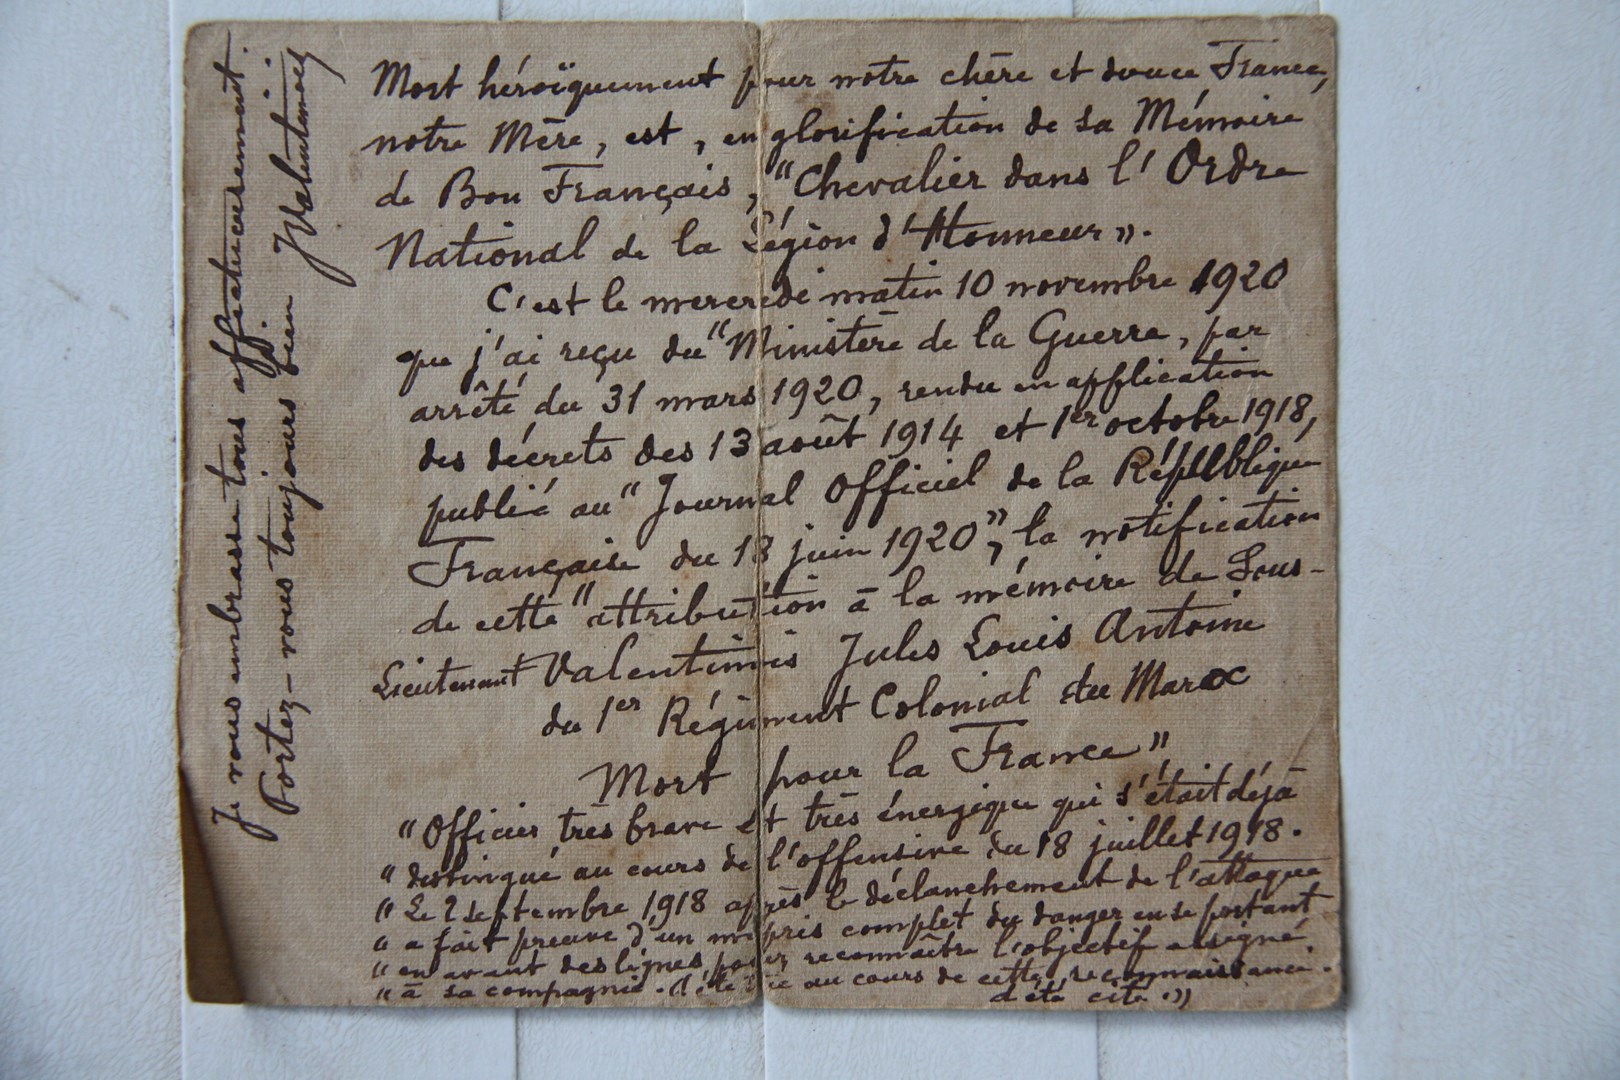 Mort héroïquement pour notre chère et douce France,
notre Mère, est, en glorification de sa Mémoire
de Bon Français, "Chevalier dans l'Ordre
National de la Légion d'Honneur".
C'est le mercredi matin 10 novembre 1920
que j'ai reçu du "Ministère de la Guerre, par
arrêté du 31 mars 1920, rendu en application
des décrets des 13 août 1914 et 1er octobre 1918,
publié au "Journal Officiel de la République
Française du 13 juin 1920", la notification
de cette "attribution à la mémoire de Sous-
Lieutenant Valentinois Jules Louis Antoine
du 1er Régiment Colonial du Maroc
Mort pour la France"
"Officier très brave et très énergique qui s'était déjà
"distingué au cours de l'offensive du 18 juillet 1918.
"Le 2 septembre 1918 après le déclanchement de l'attaque
"a fait preuve d'un mépris complet du danger en se portant
"en avant des lignes pour reconnaître l'objectif assigné
"à sa compagnie. A été tué au cours de cette reconnaissance.
a été cité."
Je vous embrasse tous affectueusement.
Portez-vous toujours bien JValentinois